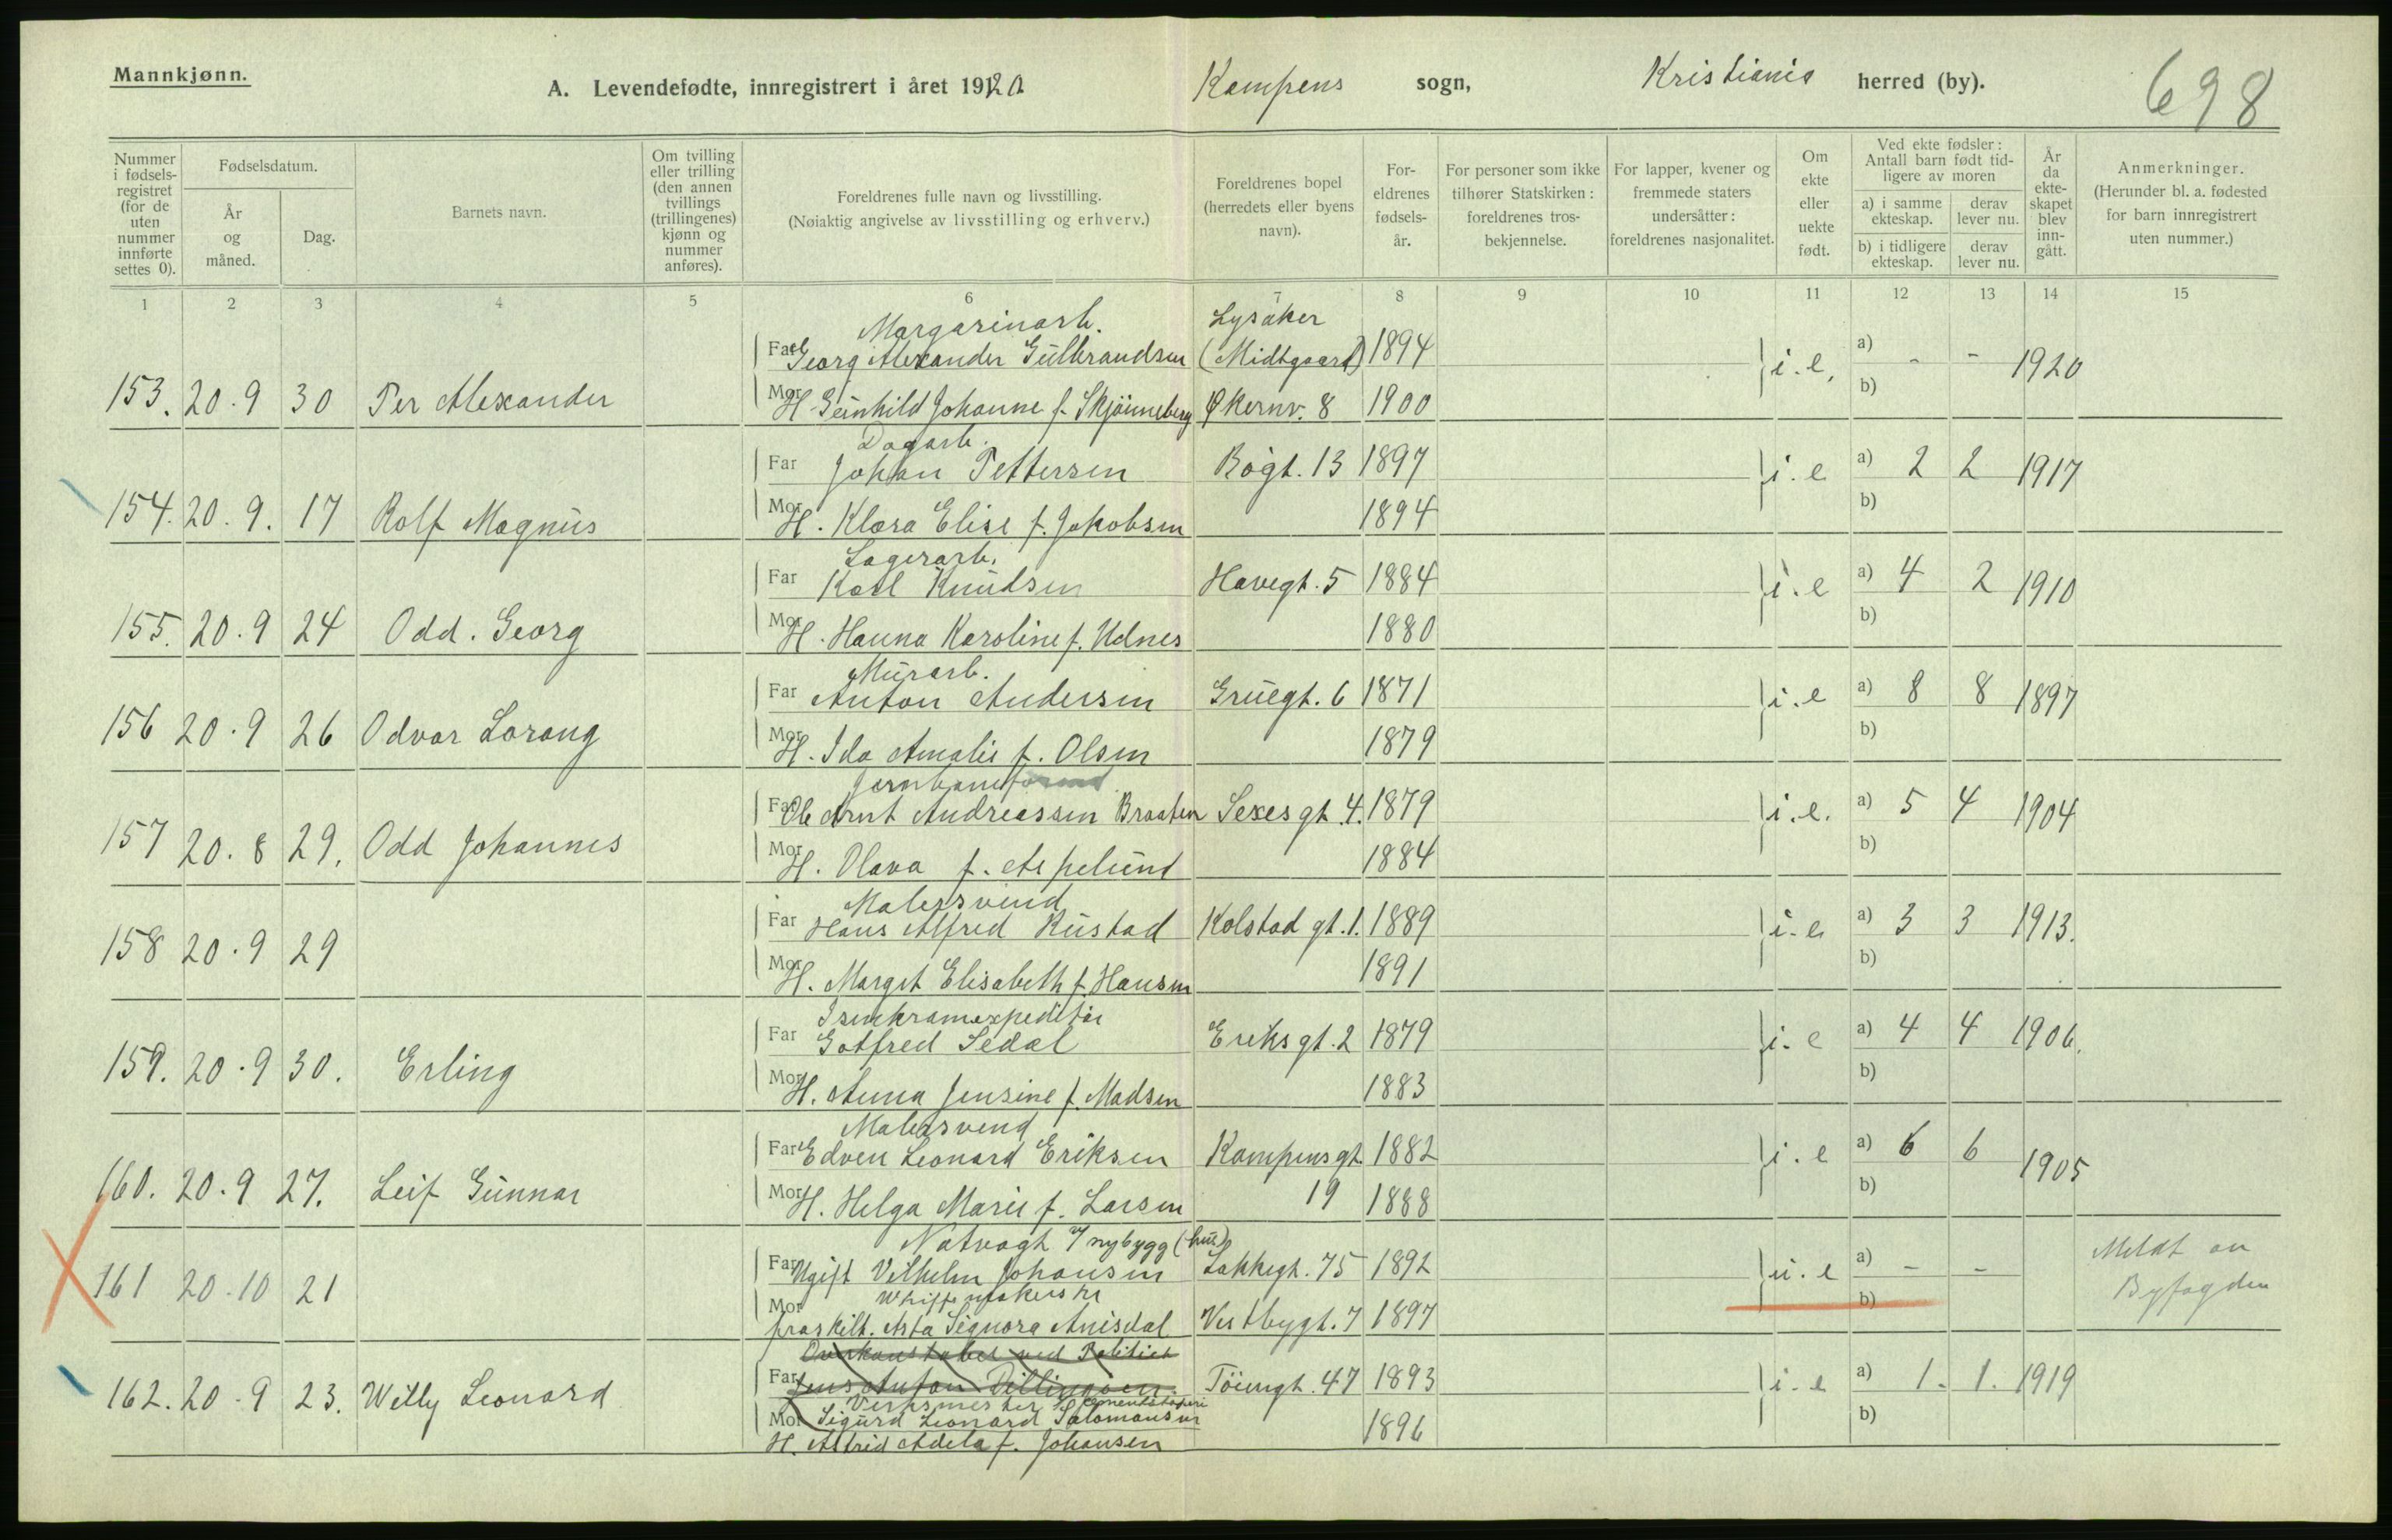 Mannkjønn.
A. Levendefødte, innregistrert i året 1920
Kampens sogn,
Kristiania herred (by).
698
Nummer i fødselsregistret (for de uten nummer innførte settes 0).
Fødselsdatum.
År og måned.
Dag.
Barnets navn.
Om tvilling eller trilling (den annen tvillings (trillingenes) kjønn og nummer anføres).
Foreldrenes fulle navn og livsstilling.
(Nøiaktig angivelse av livsstilling og erhverv.)
Foreldrenes bopel (herredets eller byens navn).
Foreldrenes fødselsår.
For personer som ikke tilhører Statskirken: foreldrenes trosbekjennelse.
For lapper, kvener og fremmede staters undersåtter: foreldrenes nasjonalitet.
Om ekte eller uekte født.
Ved ekte fødsler: Antall barn født tidligere av moren
a) i samme ekteskap.
derav lever nu.
b) i tidligere ekteskap.
derav lever nu.
År da ekteskapet blev inngått.
Anmerkninger.
(Herunder bl. a. fødested for barn innregistrert uten nummer.)
1 2 3 4 5 6 7 8 9 10 11 12 13 14 15
Margarinarb. Lysaker
Far Georg Alexander Gulbrandsen (Midtgaard) 1894 i.e. a) - - 1920
153. 20.9 30 Per Alexander
Mor H. Gunhild Johanne f. Skjönneberg Økernv. 8 1900 b)
Dagarb.
Far Johan Pettersen Bögt. 13 1897 i.e a) 2 2 1917
154. 20.9. 17 Rolf Magnus
Mor H. Klara Elise f. Jakobsen 1894 b)
Lagerarb.
Far Karl Knudsen Havegt. 5 1884 i.e a) 4 2 1910
155. 20.9 24 Odd. Georg
Mor H. Hanna Karoline f. Udnes 1880 b)
Murarb.
Far Anton Andersen Gruegt. 6 1871 i.e a) 8 8 1897
156 20.9 26 Odvar Lorang
Mor H. Ida Amalie f. Olsen 1879 b)
Jernbaneformd
Far Ole Arnt Andreassen Braaten Sexes gt. 4. 1879 i.e. a) 5 4 1904
157 20.8 29. Odd Johannes
Mor H. Olava f. Aspelund 1884 b)
Malersvend
Far Hans Alfred Rustad Kolstad gt. 1. 1889 i.e a) 3 3 1913.
158 20.9 29
Mor H. Margit Elisabeth f. Hansen 1891 b)
Isenkramexpeditör
Far Gotfred Sedal Eriks gt. 2 1879 i.e a) 4 4 1906.
159. 20.9 30. Erling
Mor H. Anna Jensine f. Madsen 1883 b)
Malersvend
Far Edven Leonard Eriksen Kampens gt. 1882 i.e a) 6 6 1905
160. 20.9 27. Leif Gunnar
Mor H. Helga Marie f. Larsen 19 1888 b)
Natvagt i nybygg (hus)
Far Ugift Vilhelm Johansen Lakkegt. 75 1892 u.e a) - - Meldt av
161 20.10 21 Byfogden
Mor fraskilt. Asta Signora Anisdal Vestbygt. 7 1897 b)
Overkonstabel ved Politiet
Far Jens Anton Töiengt. 47 1893 i.e a) 1. 1. 1919
162. 20.9 23. Willy Leonard
Verksmester
Mor Sigurd Leonard Salomonsen b)
H. Astrid Adela f. Johansen 1896